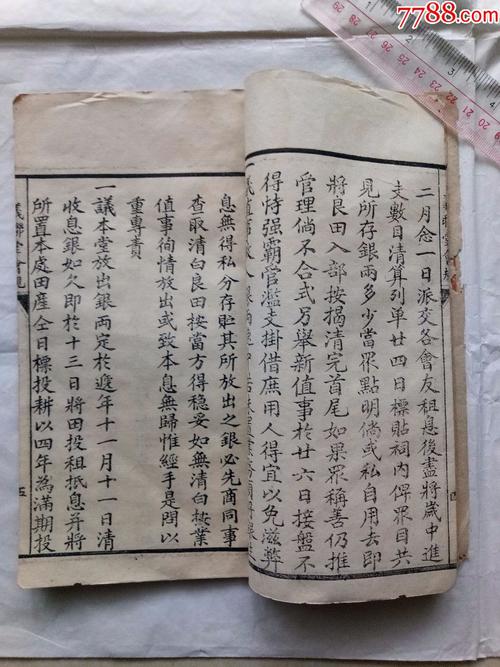 7788.com
二月念一日派交各會友租息後盡將歲中進
支數目清算列单廿四日標貼祠内俾眾目共
見所存銀兩多少當眾點明倘或私自用去即
將良田入部按揭清完首尾如果眾稱善仍推
管理倘不合式另舉新值事於廿六日接盤不
得恃强霸官濫支掛借庶用人得宜以免滋弊
四
息無得私分存貯其所放出之銀必先商同事
查取清白良田按當方得穩妥如無清白按業
值事徇情放出或致本息無歸惟經手是問以
重專責
一議本堂放出銀兩定於遞年十一月十一日清
收息銀如久即於十三日將田投租抵息并將
所置本處田産仝日標投耕以四年為滿期投
義聯堂會規
五